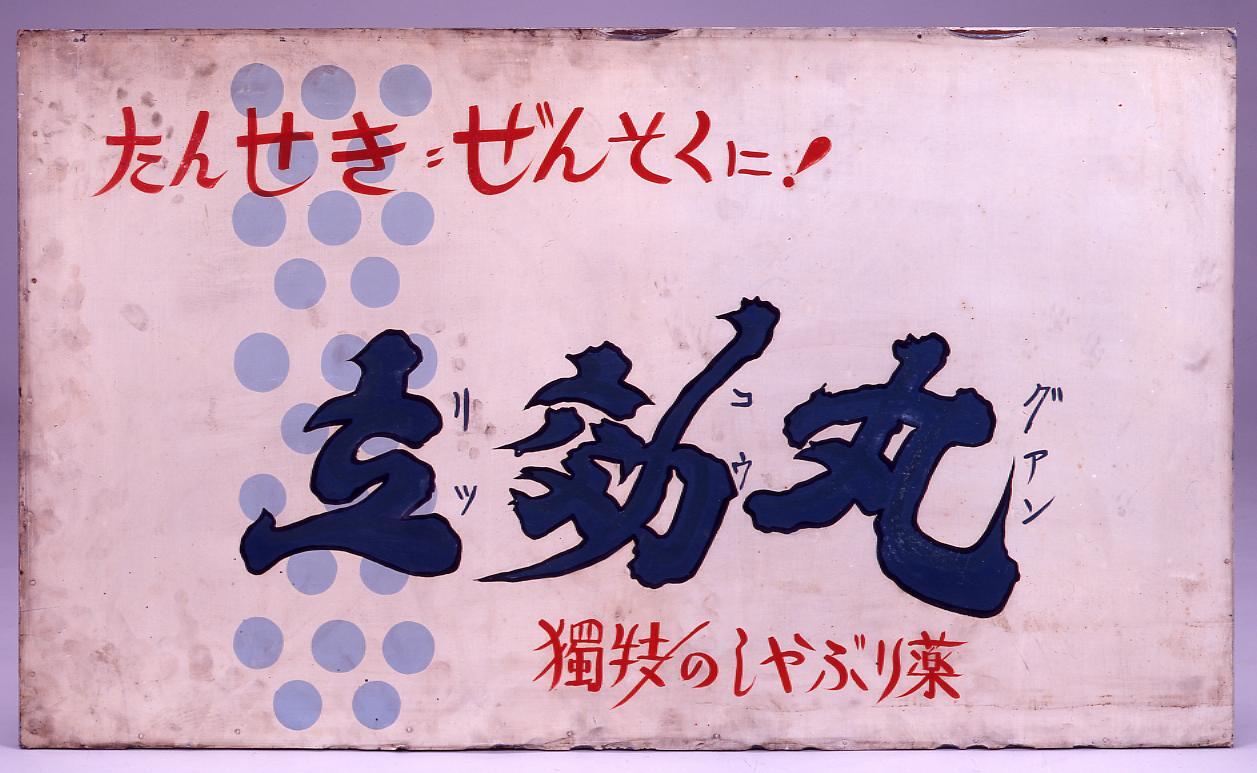 たんせき＝ぜんそくに!
立効丸
リツ コウ グアン
獨特のしやぶり薬